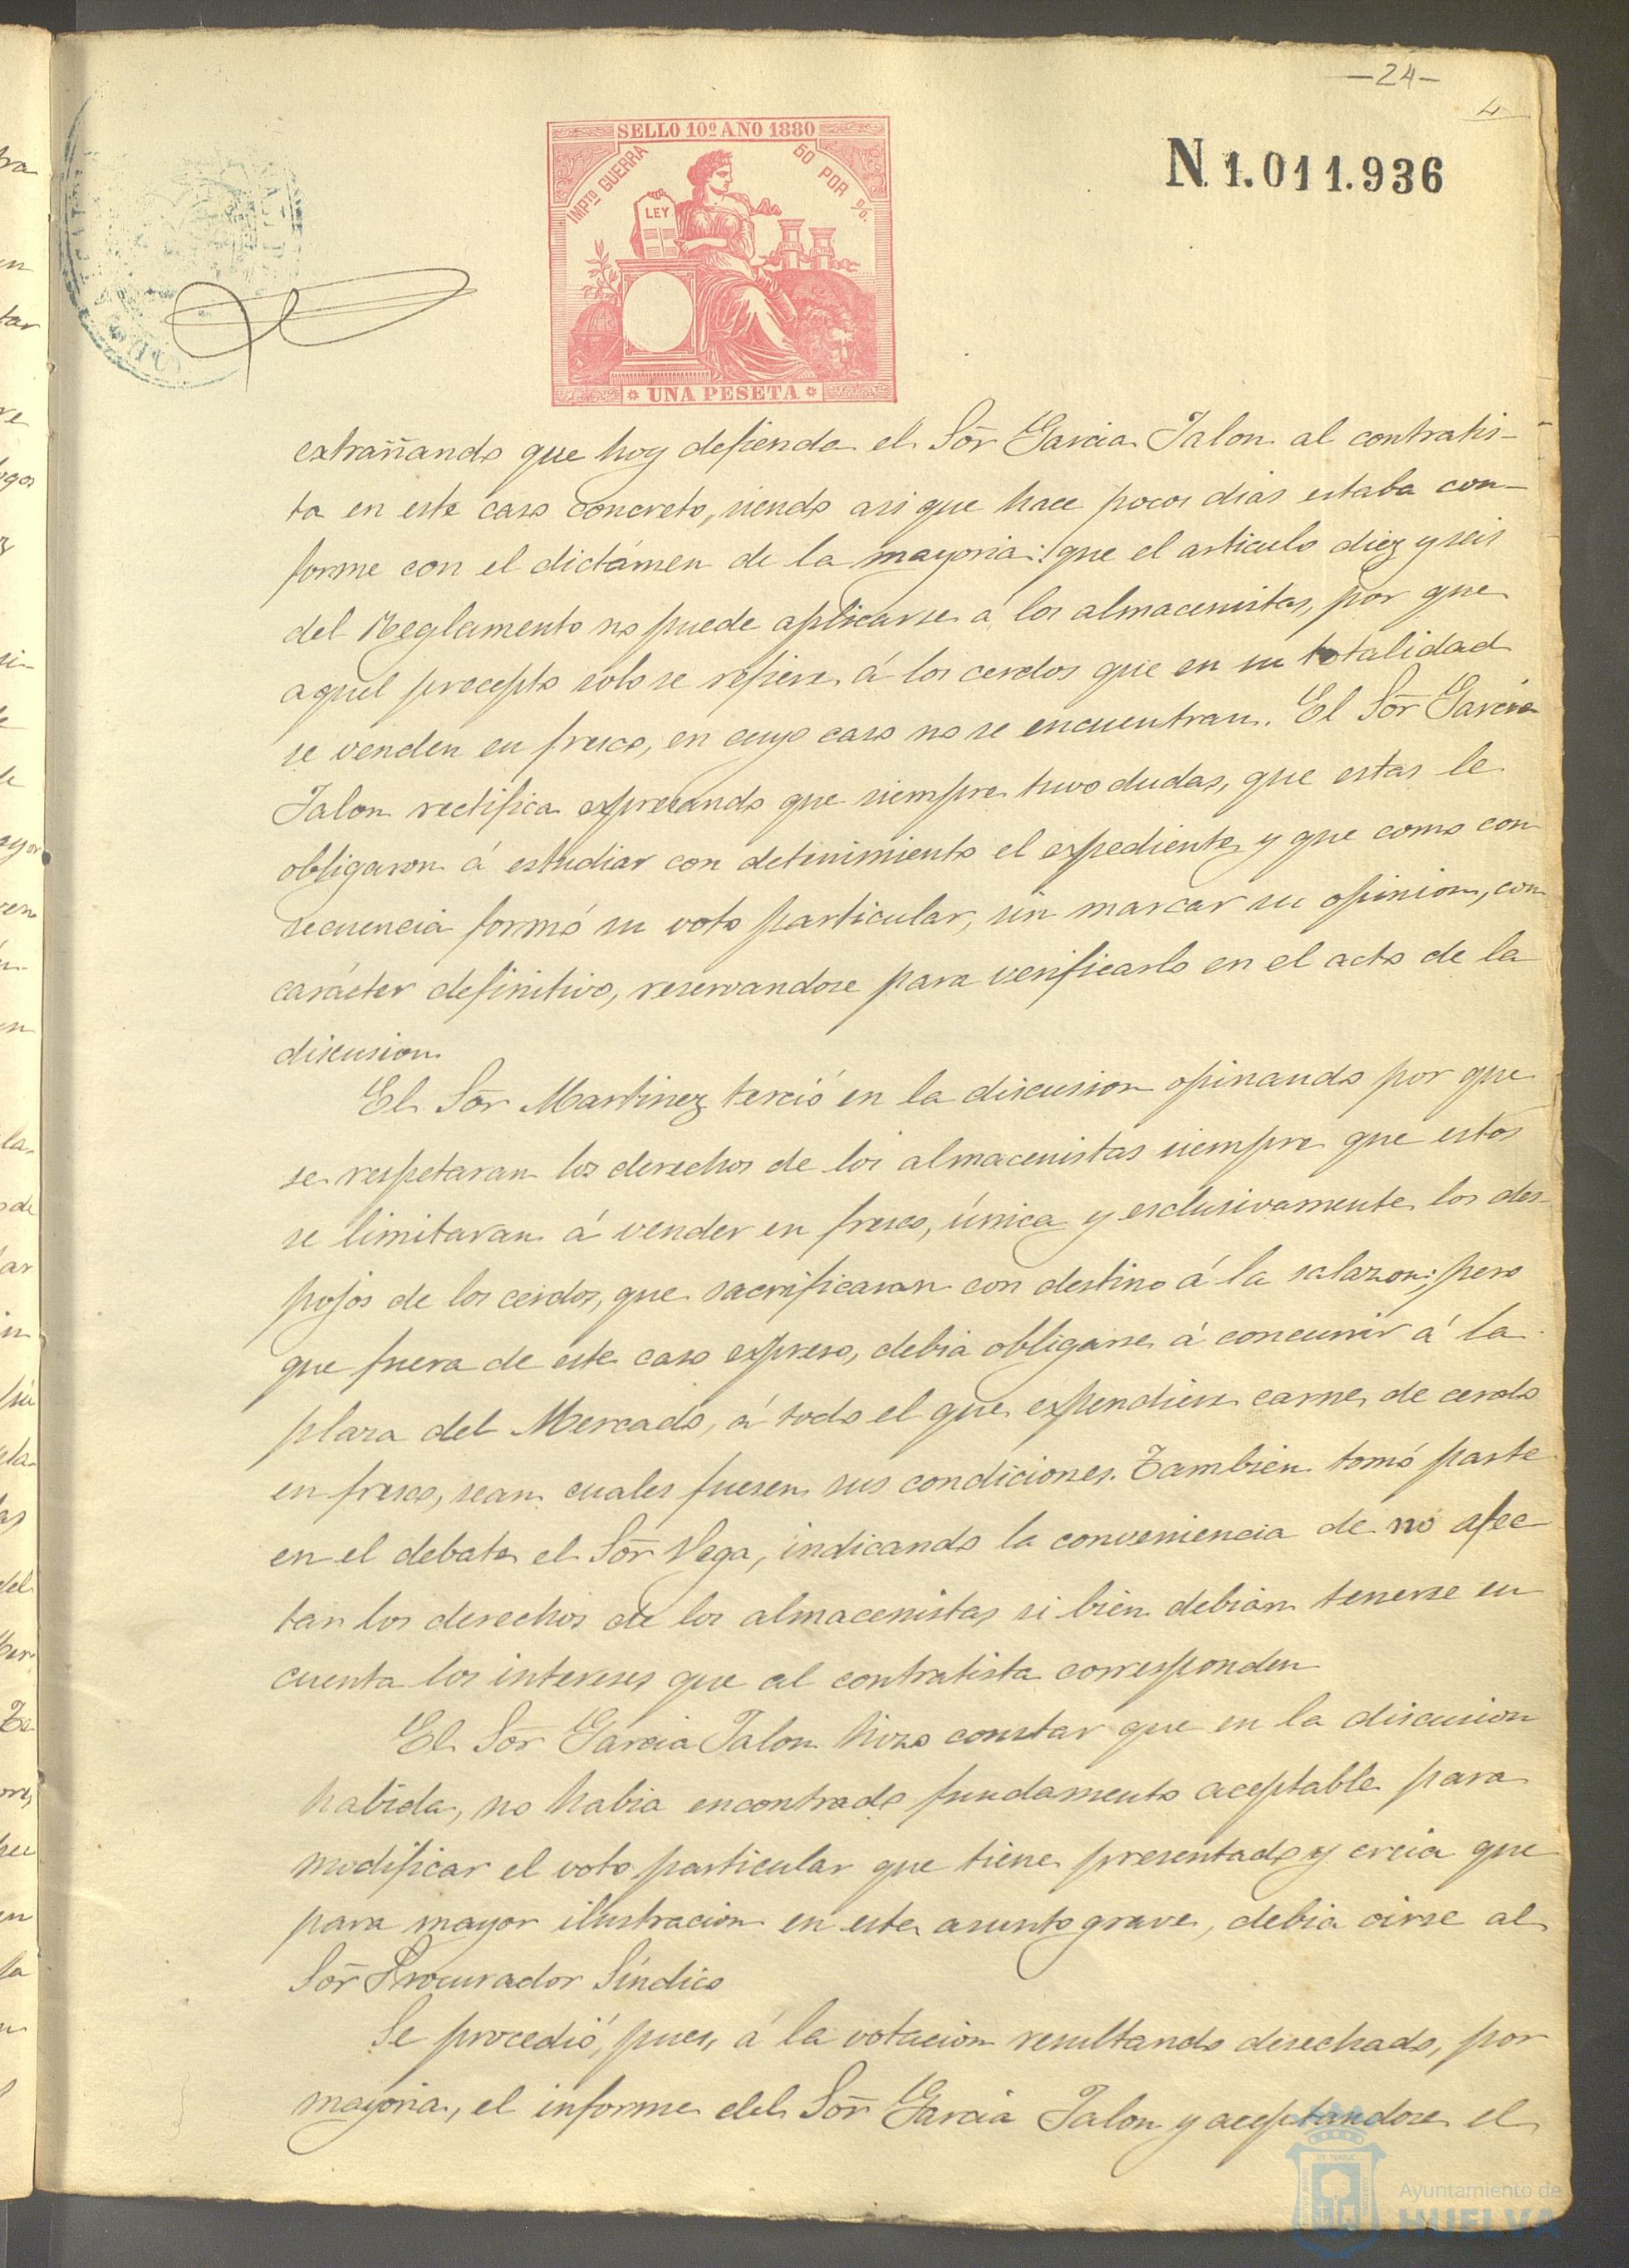 —24—
4
SELLO 10º AÑO 1880
IMPTO GUERRA
50 POR %.
LEY
UNA PESETA
N. 1.011.936
extrañando que hoy defienda el Sor̃ Garcia Jalon al contratis-
ta en este caso concreto, siendo asi que hace pocos dias estaba con-
forme con el dictámen de la mayoria: que el articulo diez y seis
del Reglamento no puede aplicarse á los almacenistas, por que
aquel precepto solo se refiere á los cerdos que en su totalidad
se venden en fresco, en cuyo caso no se encuentran. El Sor̃ Garcia
Jalon rectifica expresando que siempre tuvo dudas, que estas le
obligaron á estudiar con detinimiento el expediente y que como con
secuencia formó su voto particular, sin marcar su opinion, con
carácter definitivo, reservandose para verificarlo en el acto de la
discusion
El Sor̃ Martinez terció en la discusion opinando por que
se respetaran los derechos de los almacenistas siempre que estos
se limitaran á vender en fresco, única y esclusivamente los des-
pojos de los cerdos, que sacrificaran con destino á la salazon; pero
que fuera de este caso expreso, debia obligarse á concurrir á la
plaza del Mercado, á todo el que expendiese carne de cerdo
en fresco, sean cuales fuesen sus condiciones. Tambien tomó parte
en el debate el Sor̃ Vega, indicando la conveniencia de no afec
tar los derechos de los almacenistas si bien debian tenerse en
cuenta los intereses que al contratista corresponden
El Sor̃ Garcia Jalon hizo constar que en la discusion
habida, no habia encontrado fundamento aceptable para
modificar el voto particular que tiene presentado y creia que
para mayor ilustracion en este asunto grave, debia oirse al
Sor̃ Procurador Síndico
Se procedió, pues, á la votacion resultando desechado, por
mayoria, el informe del Sor̃ Garcia Jalon y aceptandose el
Ayuntamiento de
HUELVA